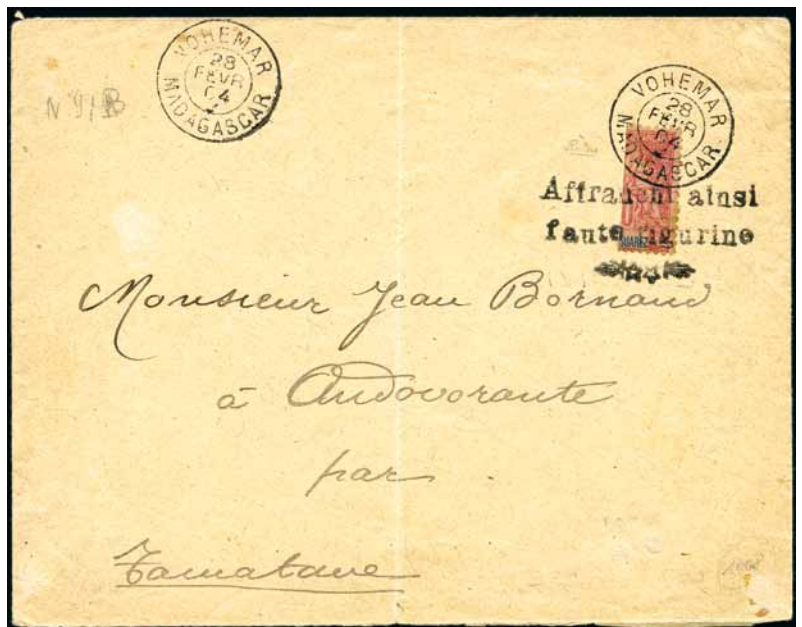 VOHEMAR
28
FEVR
04
MADAGASCAR
VOHEMAR
28
FEVR
04
MADAGASCAR
Affranchi ainsi
faute figurine
SUAREZ
Monsieur Jean Bornand
à Andovorante
par
Tamatave